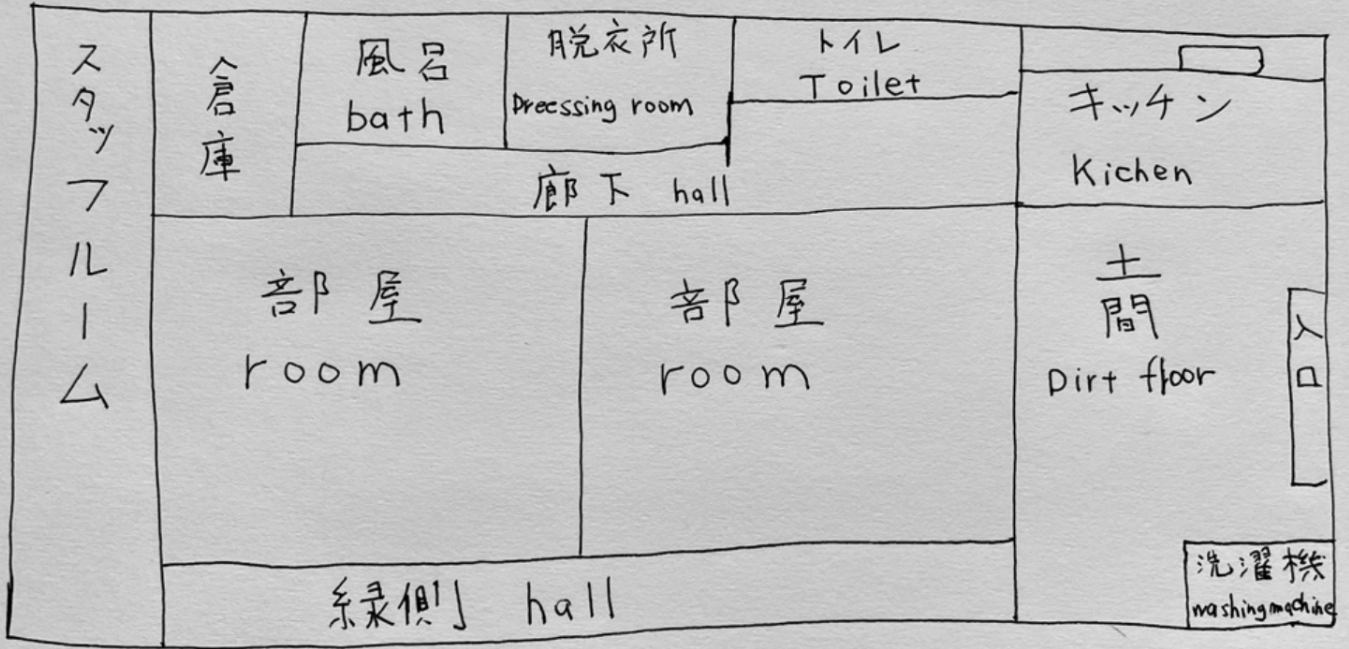 スタッフルーム
倉庫
風呂
bath
脱衣所
Dreessing room
トイレ
Toilet
キッチン
Kichen
廊下 hall
部屋
room
部屋
room
土間
Dirt floor
入口
縁側 hall
洗濯機
washing machine